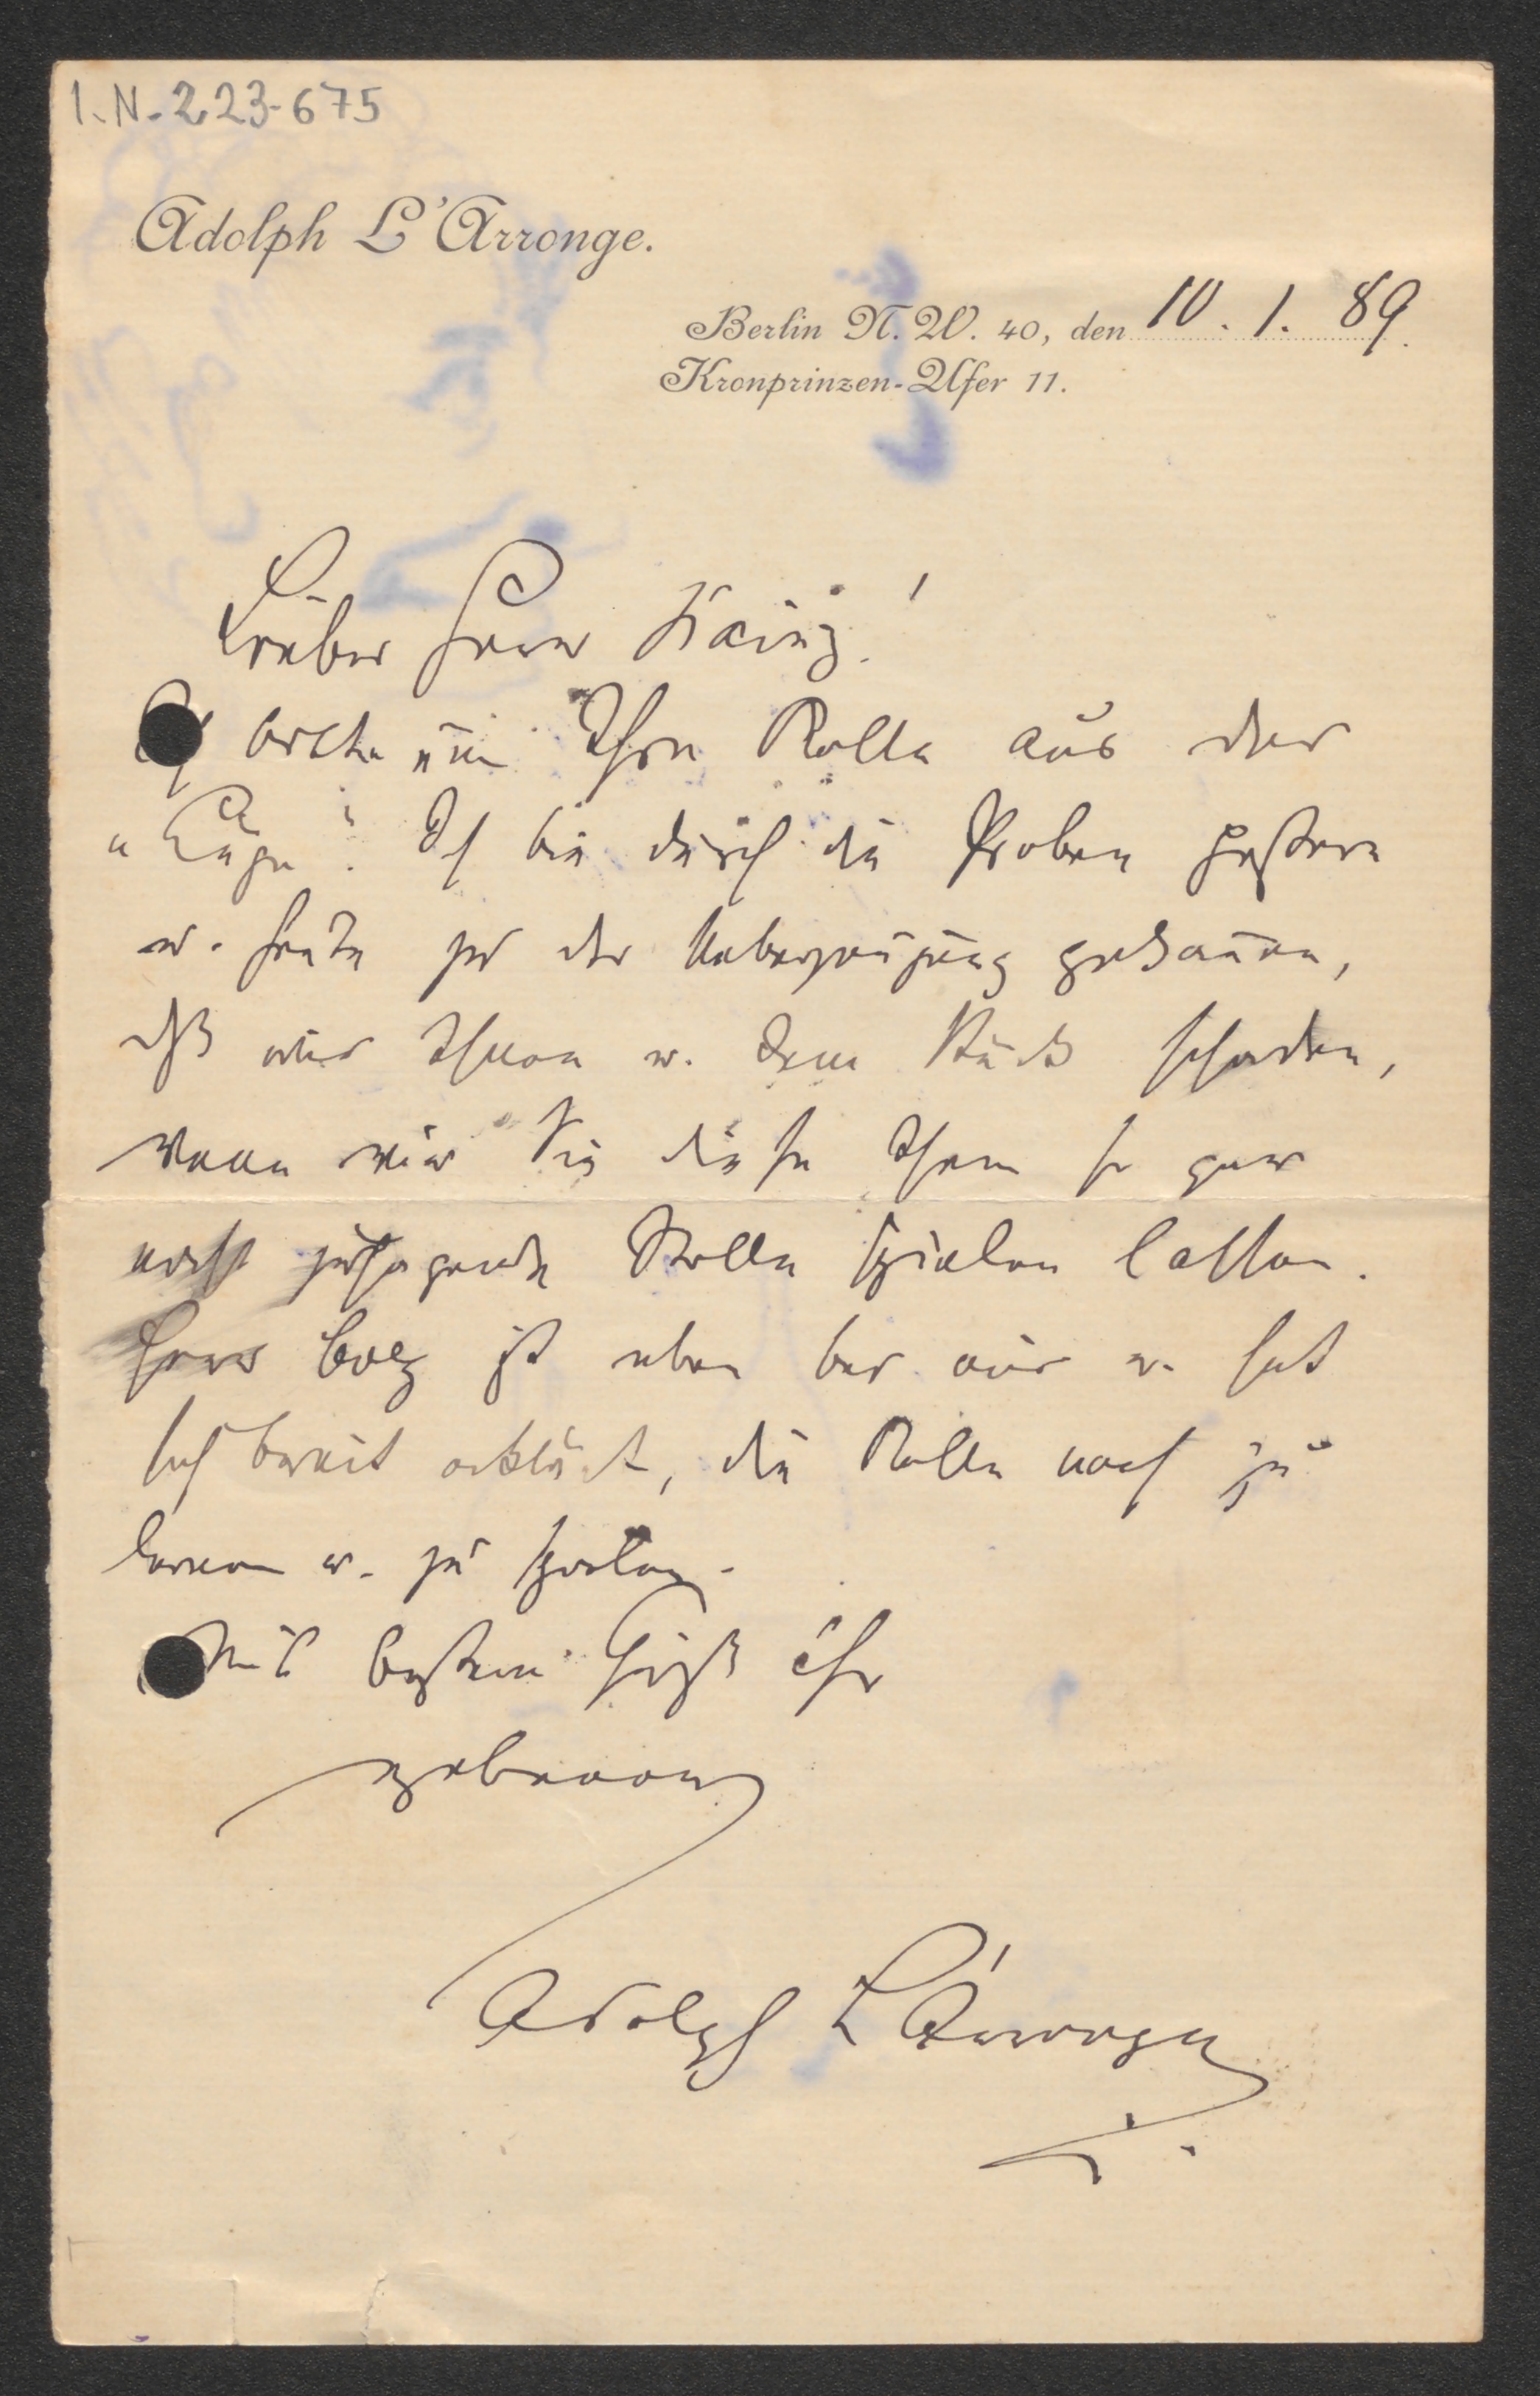 I.N. 223.675
Adolph L'Arronge.
Berlin N. W. 40, den 10. 1. 89.
Kronprinzen-Ufer 11.
Lieber Herr Kainz!
Ich bitte um Ihre Rolle aus der
"Lüge". Ich bin durch die Proben gestern
u. heute zu der Ueberzeugung gekom̄en,
daß wir Ihnen u. dem Stück schaden,
wenn wir Sie diese Ihnen so gar
nicht zusagende Rolle spielen lassen.
Herr ist eben bei mir u. hat
sich bereit erklärt, die Rolle noch zu
lernen u. zu spielen.
Mit bestem Gruß Ihr
ergebener
Adolph L'Arronge